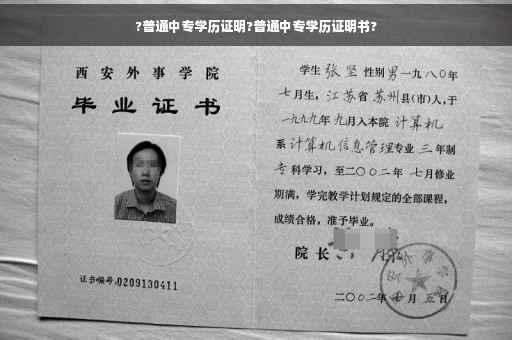 ?普通中专学历证明?普通中专学历证明书?
西安外事学院
毕业证书
证书编号:0209130411
学生 张坚 性别男 一九八〇年
七月生，江苏省 苏州县(市)人,于
一九九九年九月入本院 计算机
系 计算机信息管理专业 三 年制
专科学习，至二〇〇二年 七月修业
期满，学完教学计划规定的全部课程，
成绩合格，准予毕业。
院长
二〇〇二年 月五日